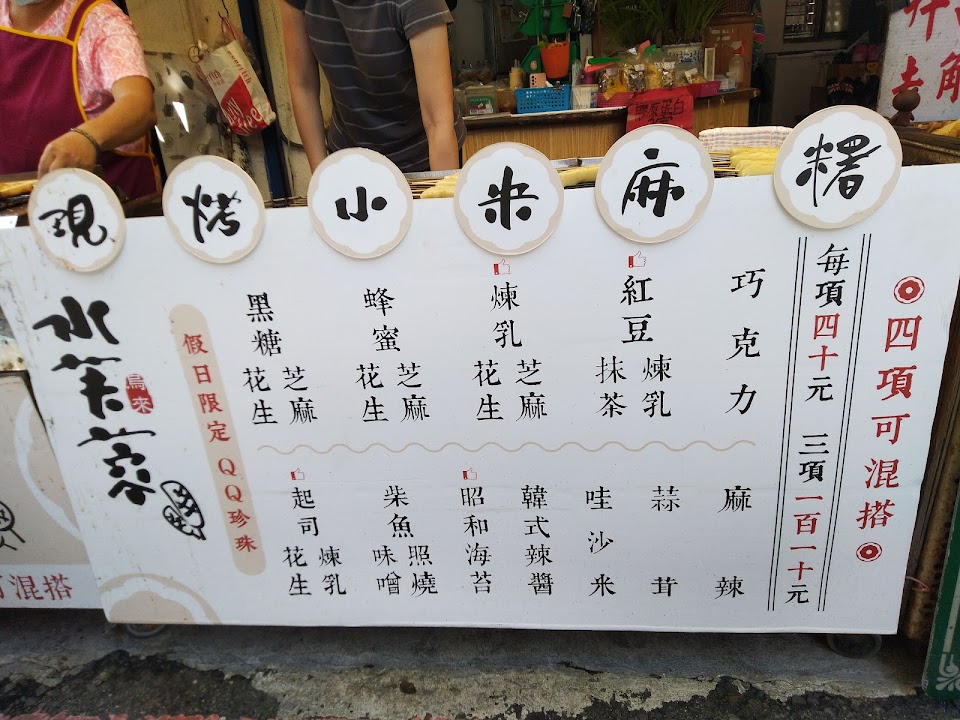 現烤小米麻糬
四項可混搭
每項四十元 三項一百一十元
巧克力
紅豆
煉乳
抹茶
煉乳
芝麻
花生
蜂蜜
芝麻
花生
黑糖
芝麻
花生
麻辣
蒜茸
哇沙米
韓式辣醬
昭和海苔
柴魚
照燒
味噌
起司
煉乳
花生
假日限定 QQ珍珠
水芙蓉
烏來
可混搭